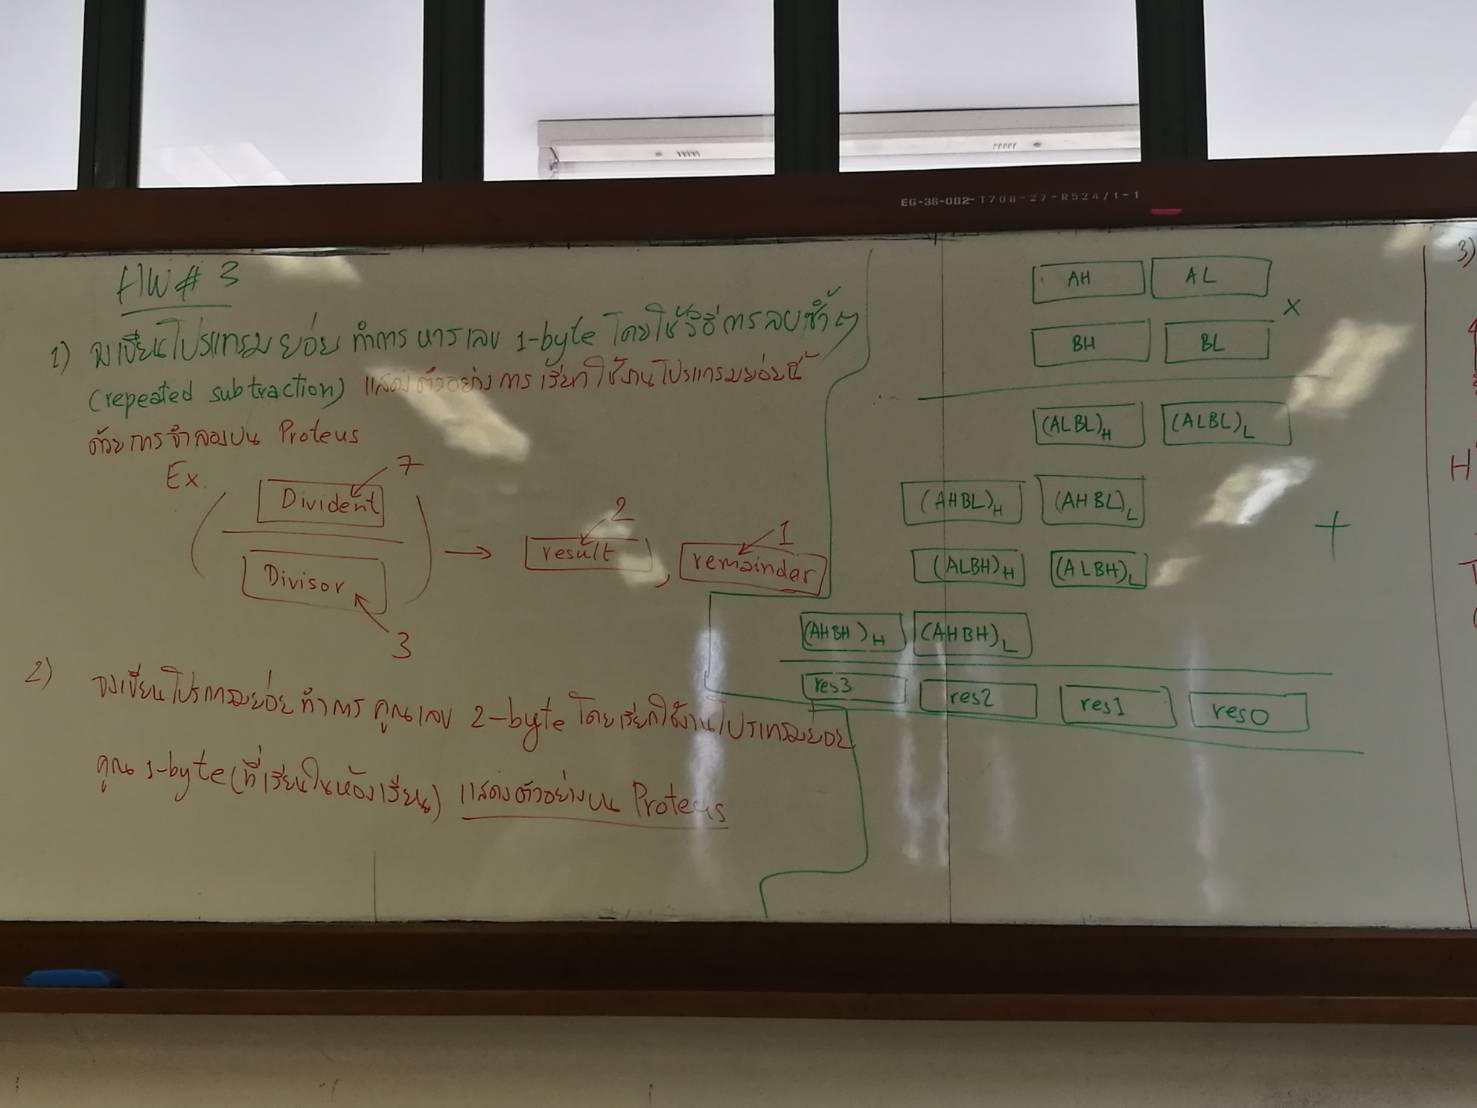 EG-36-002-1708-27-R524/1-1
HW# 3
1) จงเขียนโปรแกรมย่อย ทำการ หารเลข 1-byte โดยใช้วิธีการลบซ้ำๆ
(repeated subtraction) แสดงตัวอย่างการเรียกใช้งานโปรแกรมย่อยนี้
ด้วยการจำลองบน Proteus
Ex.
7
Divident
Divisor
3
2
result
,
1
remainder
2) จงเขียนโปรแกรมย่อย ทำการ คูณเลข 2-byte โดยเรียกใช้งานโปรแกรมย่อย
คูณ 1-byte (ที่เรียนในห้องเรียน) แสดงตัวอย่างบน Proteus
AH AL
×
BH BL
(ALBL)H (ALBL)L
(AHBL)H (AHBL)L
+
(ALBH)H (ALBH)L
(AHBH)H (AHBH)L
res3 res2 res1 res0
3)
H